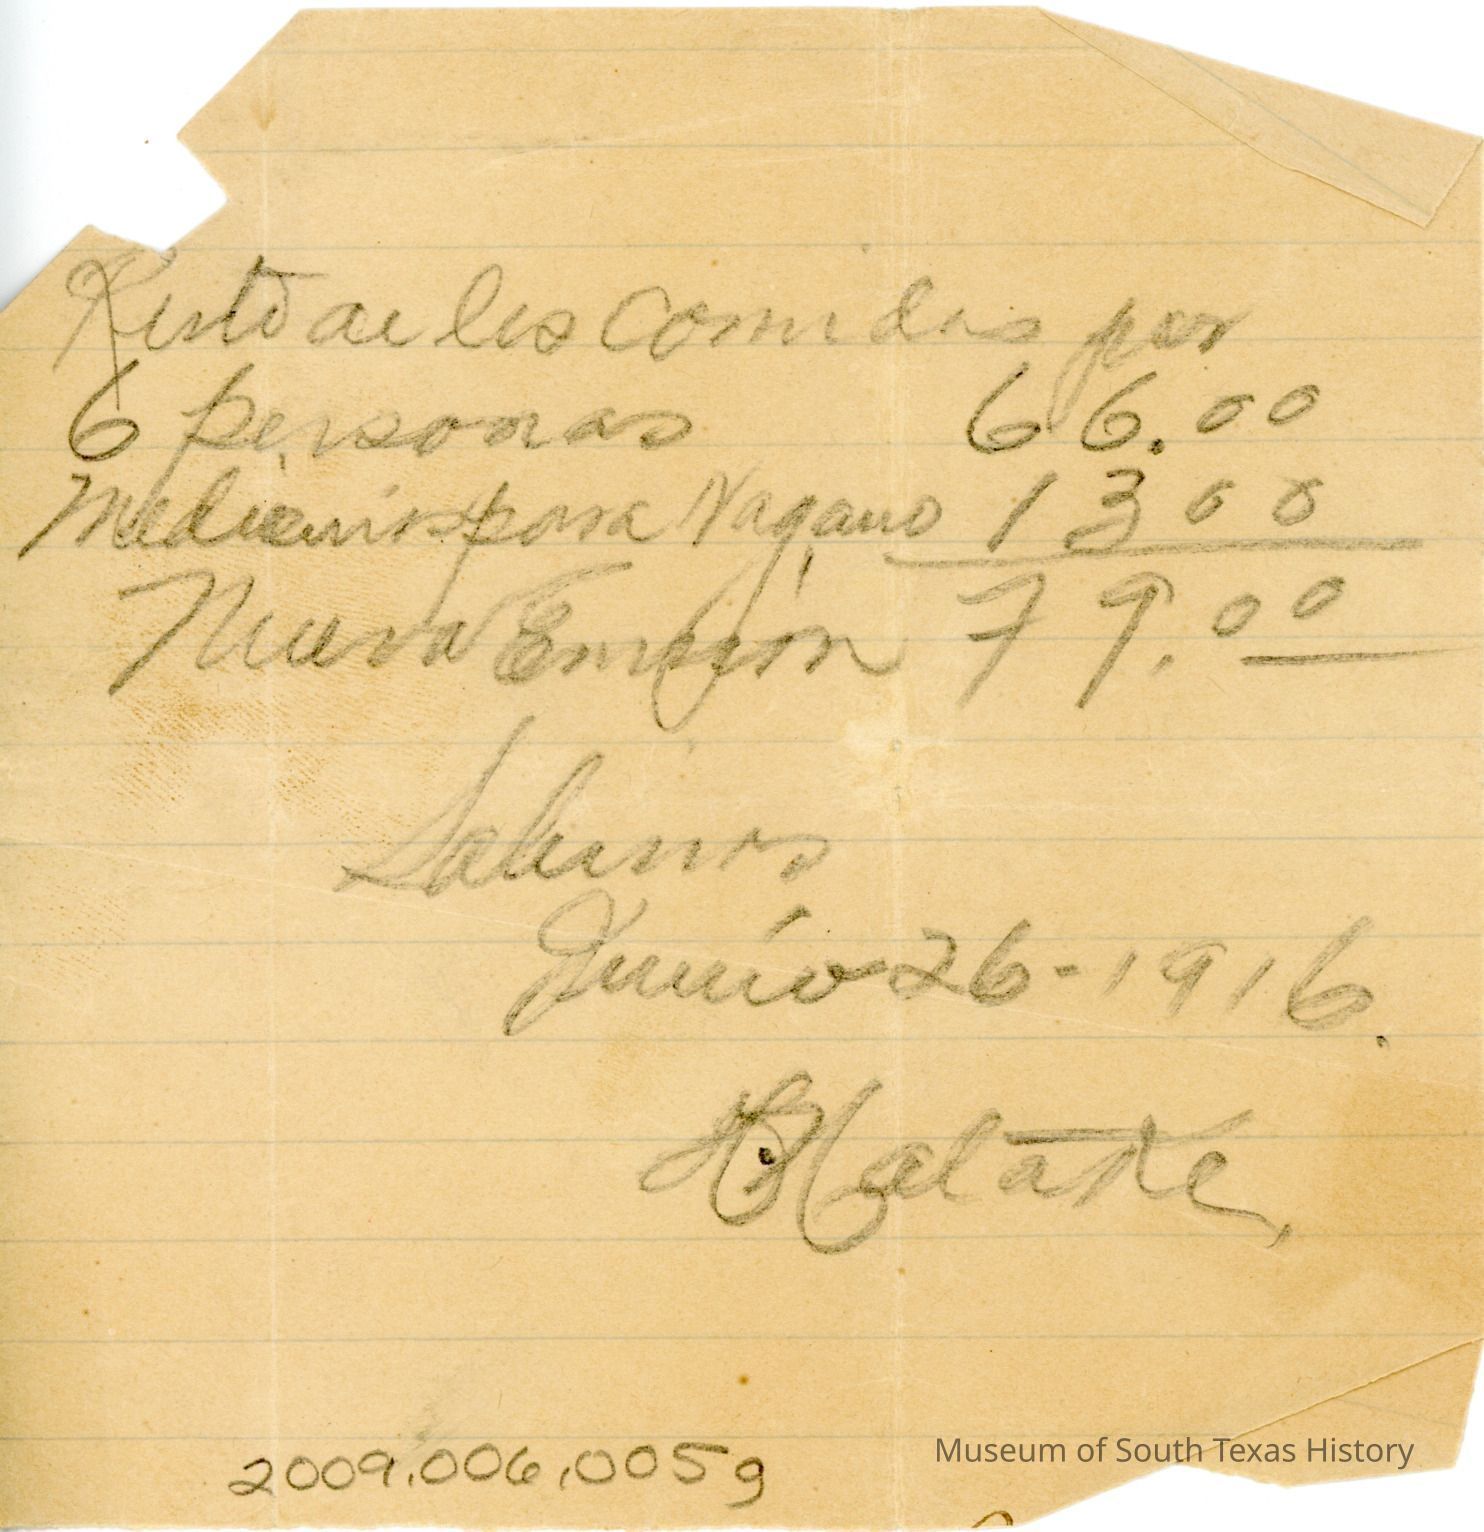 Resto de las comidas por
6 personas 66.00
Medicinas para Nagano 13 00
Nueva Emisión 79.00
Sabinas
Junio 26-1916.
2009.006.005g
Museum of South Texas History